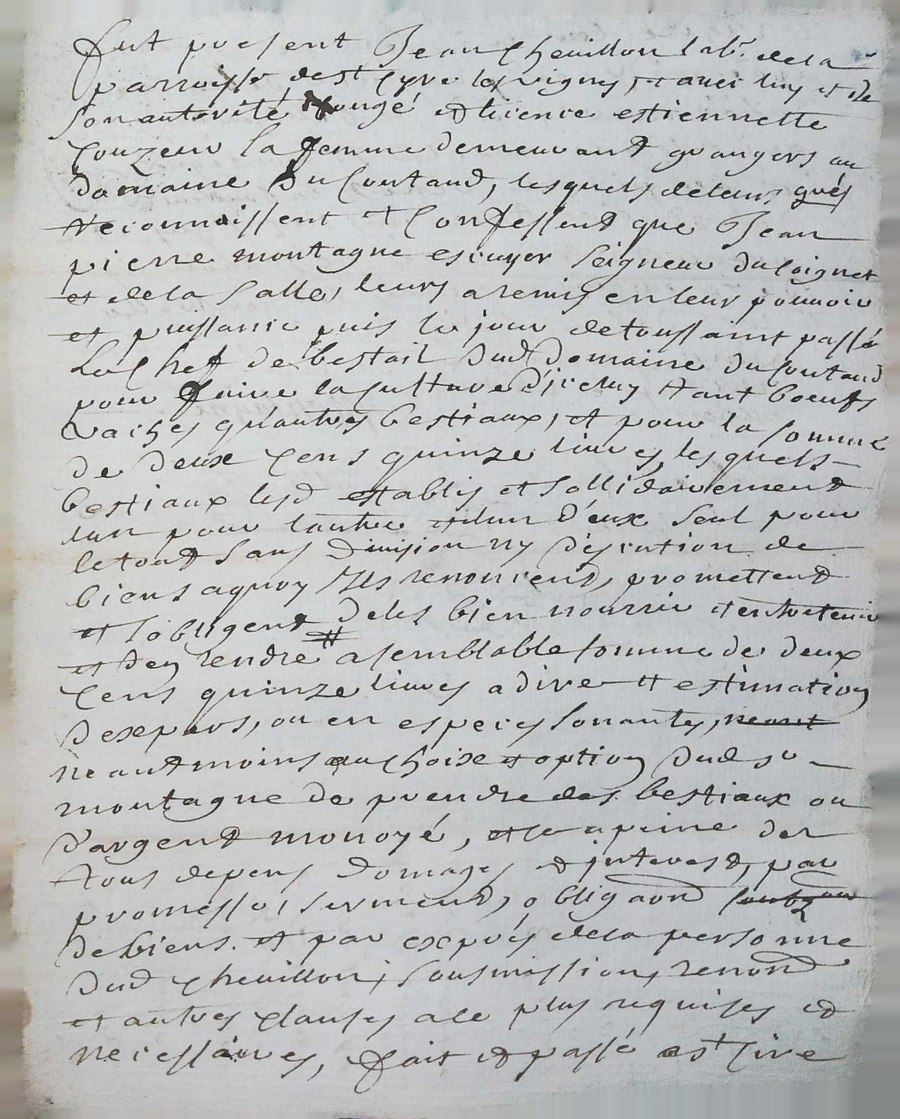 fut present Jean Cheuillon labr. de la
parroisse de st Cyre les vignes, et avec luy et de
son autorité congé et licence estiennette
Couzeur sa femme demeurant grangers au
domaine du Coutaud, lesquels de leurs grés
reconnoissent et Confessent que Jean
pierre montagne escuyer Seigneur du poignet
et de la Salle, leurs a remis en leur pouvoir
et puissance puis le jour de toussaint passé
Le Chef de bestail dud domaine du Coutaud
pour faire la Culture d'iceluy tant boeufs
vaches qu'autres bestiaux, et pour la somme
de deux Cens quinze livres, lesquels
bestiaux lesd establis et sollidairement
lun pour lautre et lun d'eux seul pour
le tout sans division ny discution de
biens a quoy Ils renoncent, promettent
et s'obligent de les bien nourrir et entretenir
et d'en rendre # a semblable somme de deux
Cens quinze livres a dire et estimation
d'expers, ou en especes sonantes, neant
neantmoins au choix et option dud sr
montagne de prendre des bestiaux ou
d'argent monoyé, et ce a peine de
tous depens domages et interest, par
promesse, serment, obligaon
de biens et par exprés de la personne
dud Cheuillon, sousmission, renond
et autres clauses a ce plus requises et
necessaires, fait et passé a st Cire